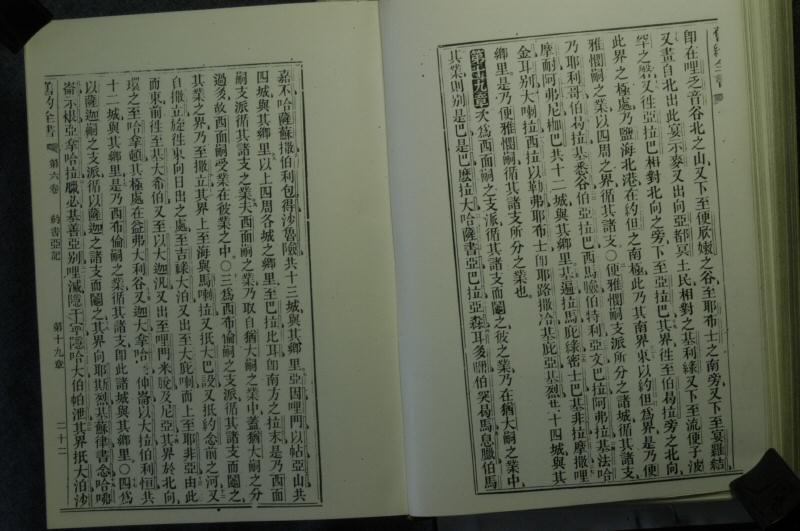 即在哩乏音谷北之山又下至便㐲嫩之谷至耶布士之南旁又下至宴羅結
又畫自北出此宴示麥又出向亞都冥土民相對之基利綠又下至流便子波
之磐又徃亞拉巴相對北向之旁下至亞拉巴其界徃至伯曷拉旁之北向
此界之極處乃鹽海北港在約但之南極此乃其南界東以約但爲界是乃便
雅憫嗣之業以四周之界循其諸支○便雅憫嗣支派所分之諸城循其諸支
乃耶利哥伯曷拉基悉谷伯亞拉巴西馬臉伯特利亞文巴拉阿弗拉基法哈
摩耐阿弗尼枷巴共十二城與其鄉里基遍拉馬庇綠密士巴基非拉摩撒哩
金耳別大喇拉西拉以勒弗耶布士即耶路撒冷基庇亞基烈共十四城與其
鄉里是乃便雅憫嗣循其諸支所分之業也
第十九章 次爲西面嗣之支派循其諸支而鬮之彼之業乃在猶大嗣之業中
其業則別是巴是巴麽拉大哈薩書亞巴拉亞森耳多伯突曷馬息臘伯馬
嘉不哈薩蘇撒伯利包得沙魯險共十三城與其鄉里亞因哩門以帖亞山共
四城與其鄉里以上四周各城之鄉里至巴拉此耳即南方之拉末是乃西面
嗣支派循其諸支之業夫西面嗣之業乃取自猶大嗣之業中蓋猶大嗣之分
過多故西面嗣受業在彼業之中○三爲西布倫嗣之支派循其諸支而鬮之
其業之界乃至撒立其界上至海與馬喇拉又抵大巴設又抵約念前之河又
自撒立旋徃東向日出之處至吉祿大泊又出至大庇喇而上至耶非亞由此
而東前徃至基大希伯又至以大迦汎又出至哩門米脫及尼亞其界於北向
環之至哈拿頓其極處在益弗大利谷又迦大拿哈伸崙以大拉伯利恒共
十二城與其鄉里是乃西布倫嗣之業循其諸支即此諸城與其鄉里○四爲
以薩迦嗣之支派循以薩迦之諸支而鬮之其界向耶斯烈基蘇律書念哈
崙示根亞拿哈拉臘必基善亞別哩滅隱干寧隱哈大伯帕泄其界抵大泊沙
舊約全書 第六卷 約書亞記 第十九章 二十二